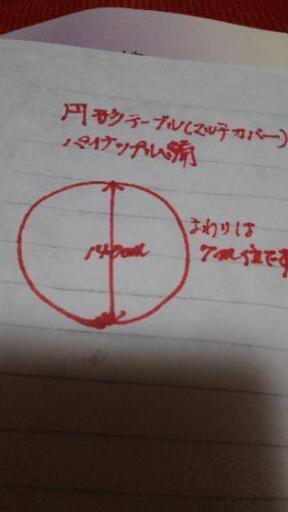 円形テーブル(マルチカバー)
パイナップル編
140cm
まわりは
7cm位です